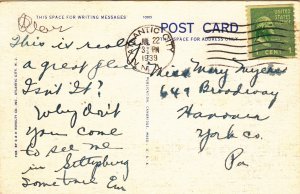 Dear
THIS SPACE FOR WRITING MESSAGES
POST CARD
THIS SPACE FOR ADDRESS ONLY
This is really
a great place
Isn't it?
Why don't
you come
to see me
in Gettysburg
sometime Em
ATLANTIC CITY
JUL 22
3 PM
1939
N.J.
UNITED STATES
1 CENT
Miss Mary Myers
649 Broadway
Hanover
York co.
Pa